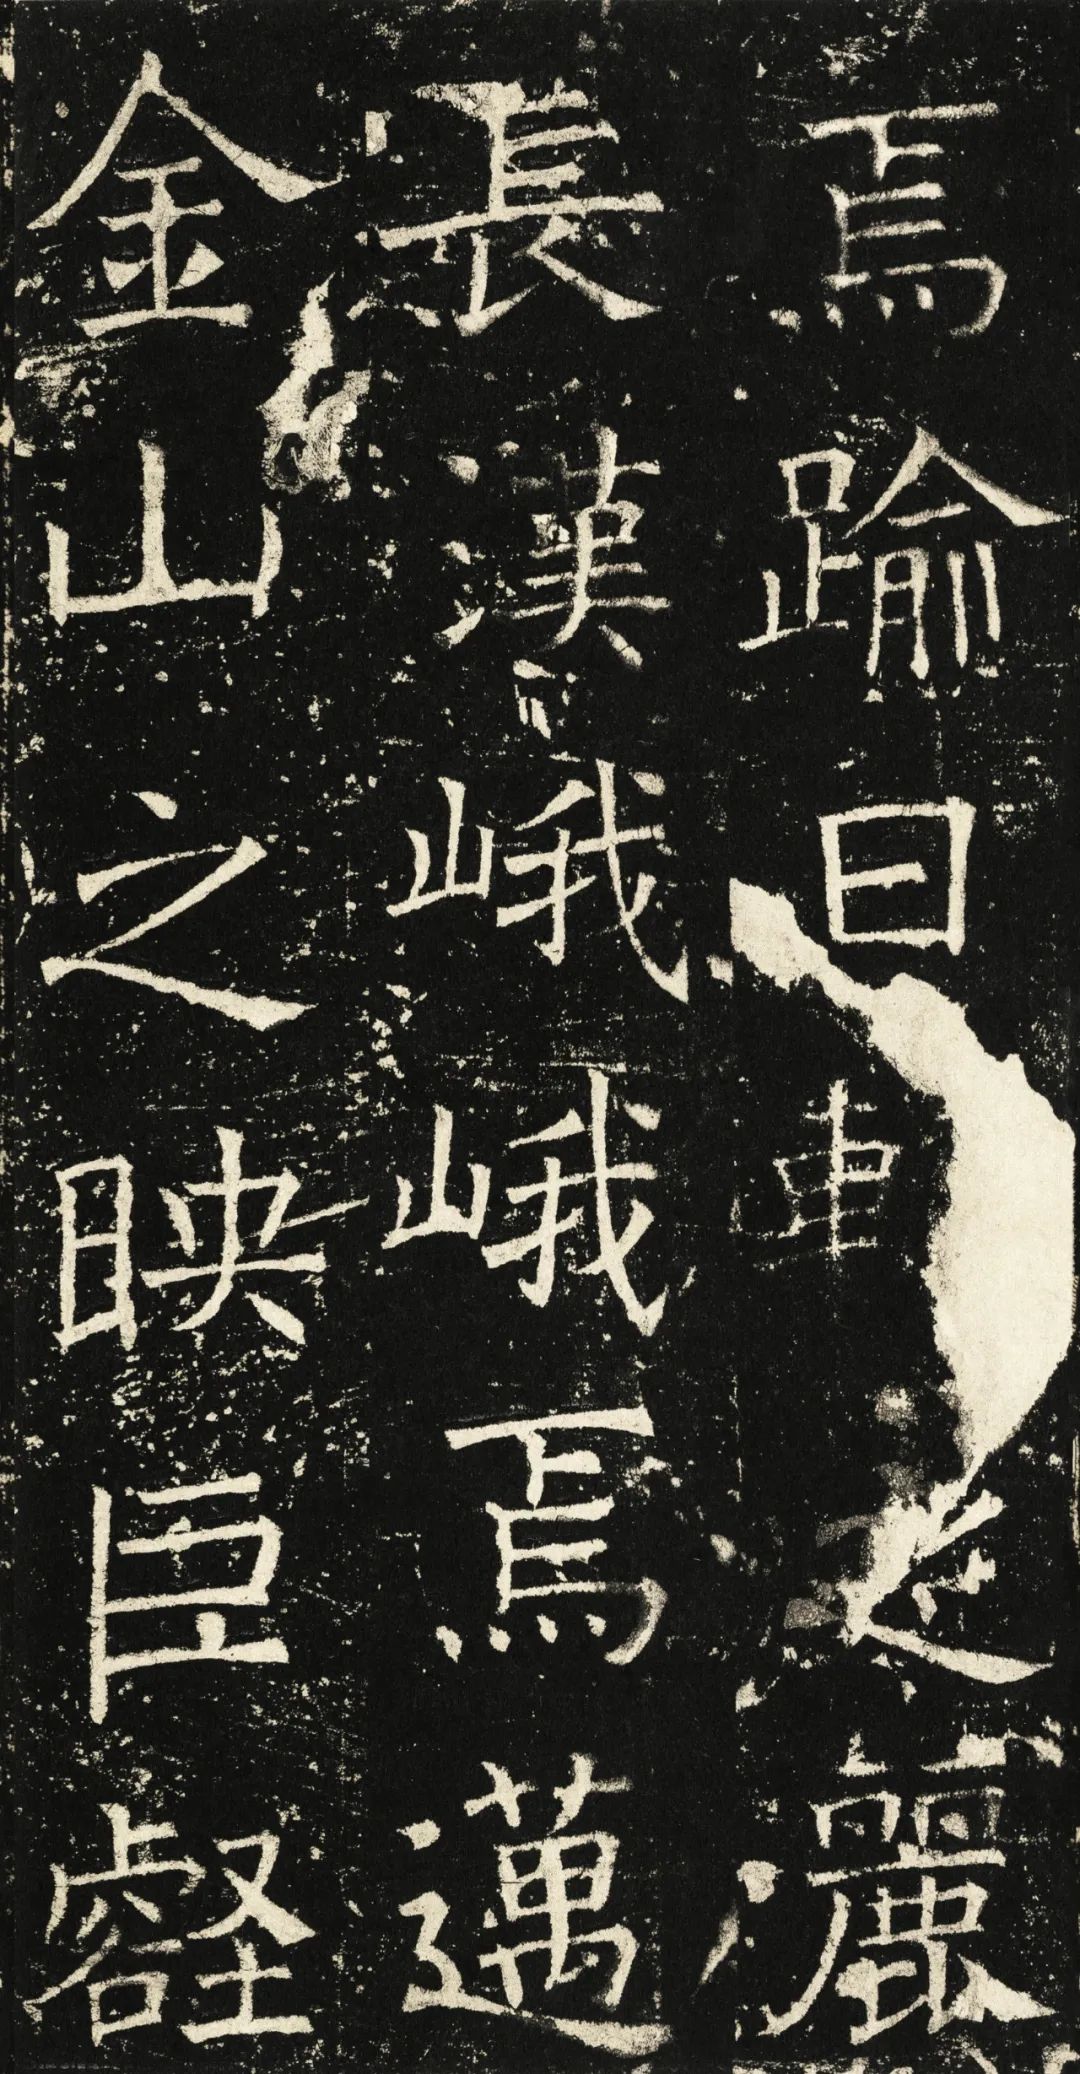 焉踰日車之麗
長漢峨峨焉邁
金山之映巨壑